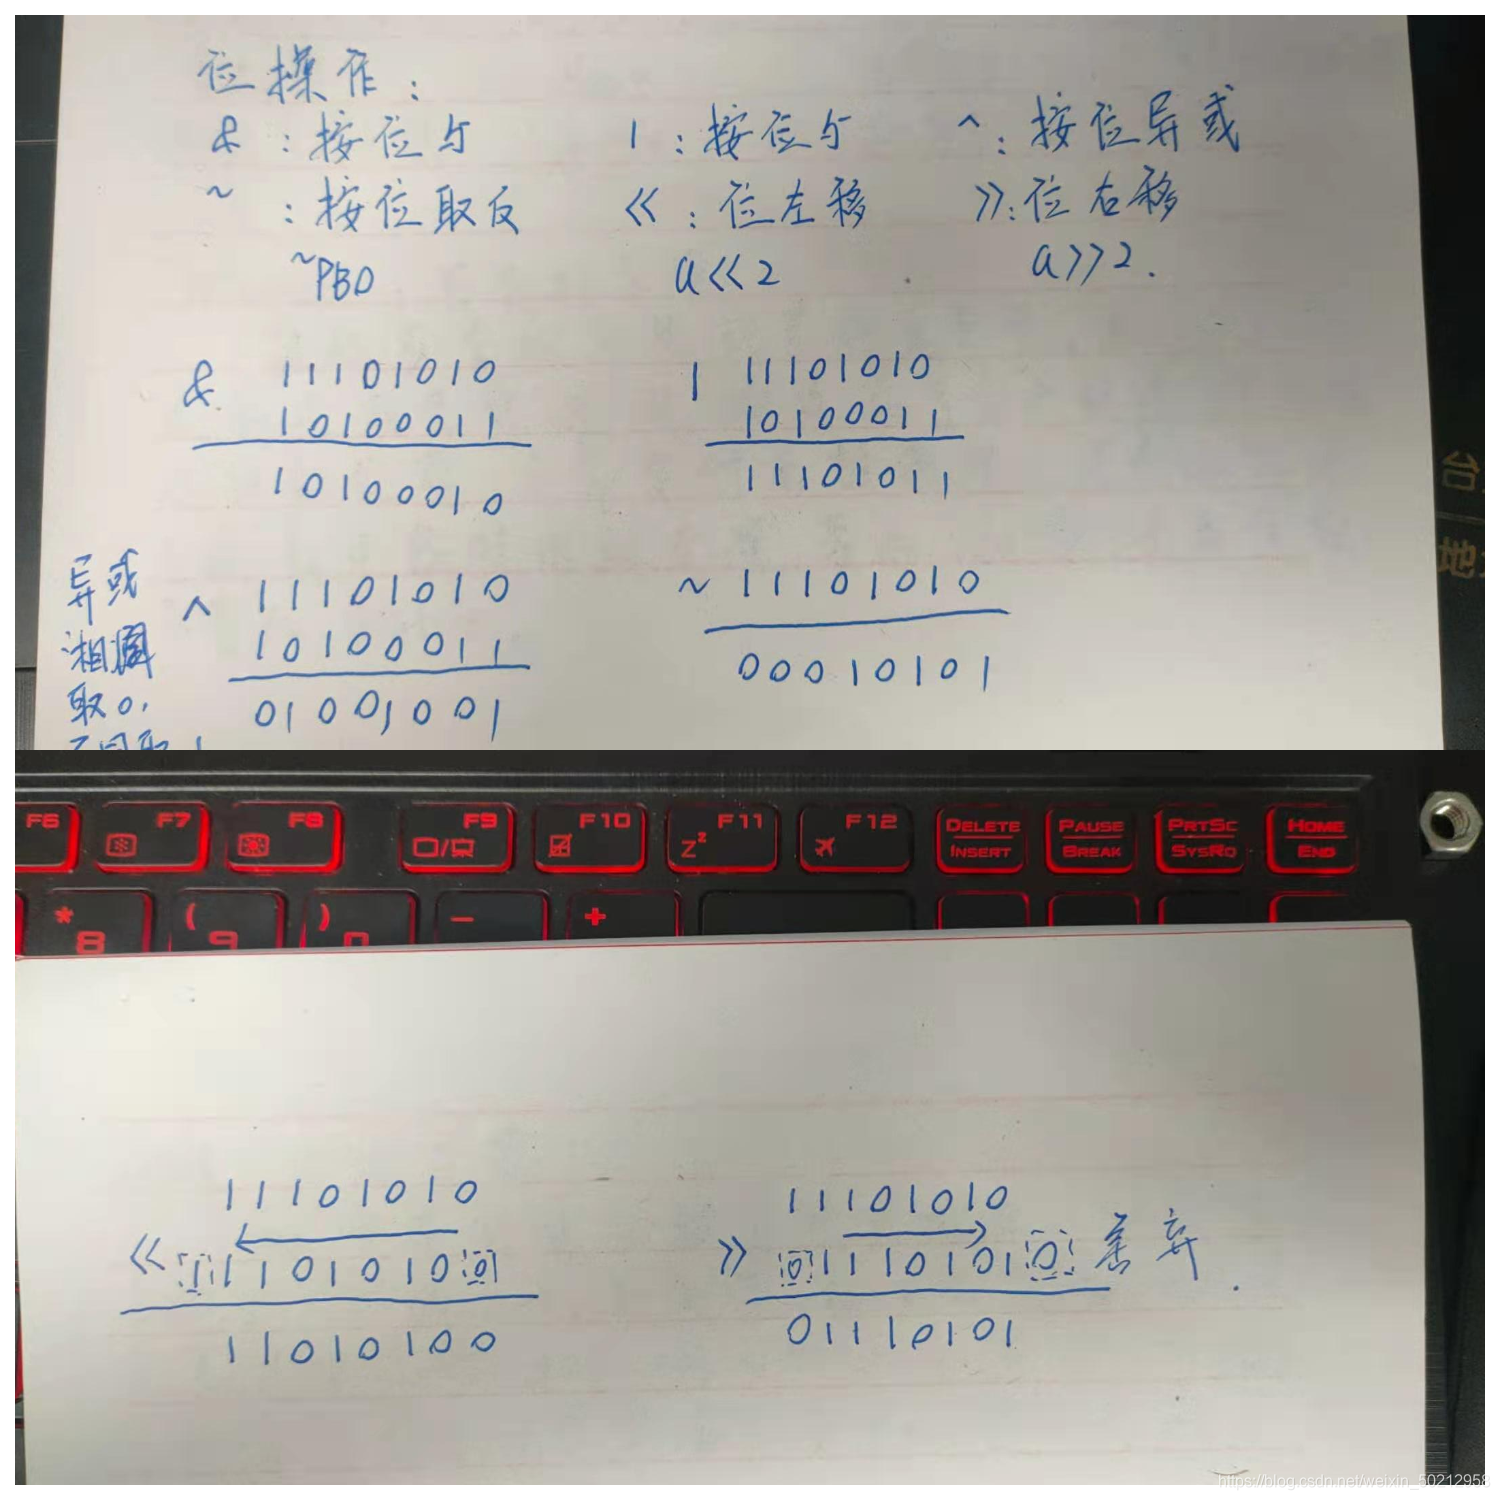 位操作:
&:按位与 |:按位与 ^:按位异或
~:按位取反 <<:位左移 >>:位右移
~PB0 a<<2 a>>2.
& 11101010 | 11101010
10100011 10100011
10100010 11101011
异或
相同
取0,
^ 11101010 ~ 11101010
10100011
01001001 00010101
台
地
F6 F7 F8 F9 F10 F11 F12 DELETE INSERT PAUSE BREAK PRTSC SYSRQ HOME END
Z z
* 8 ( 9 ) 0 - +
11101010 11101010
<< 111010100 >> 011101010 丢弃.
11010100 01110101
https://blog.csdn.net/weixin_50212958